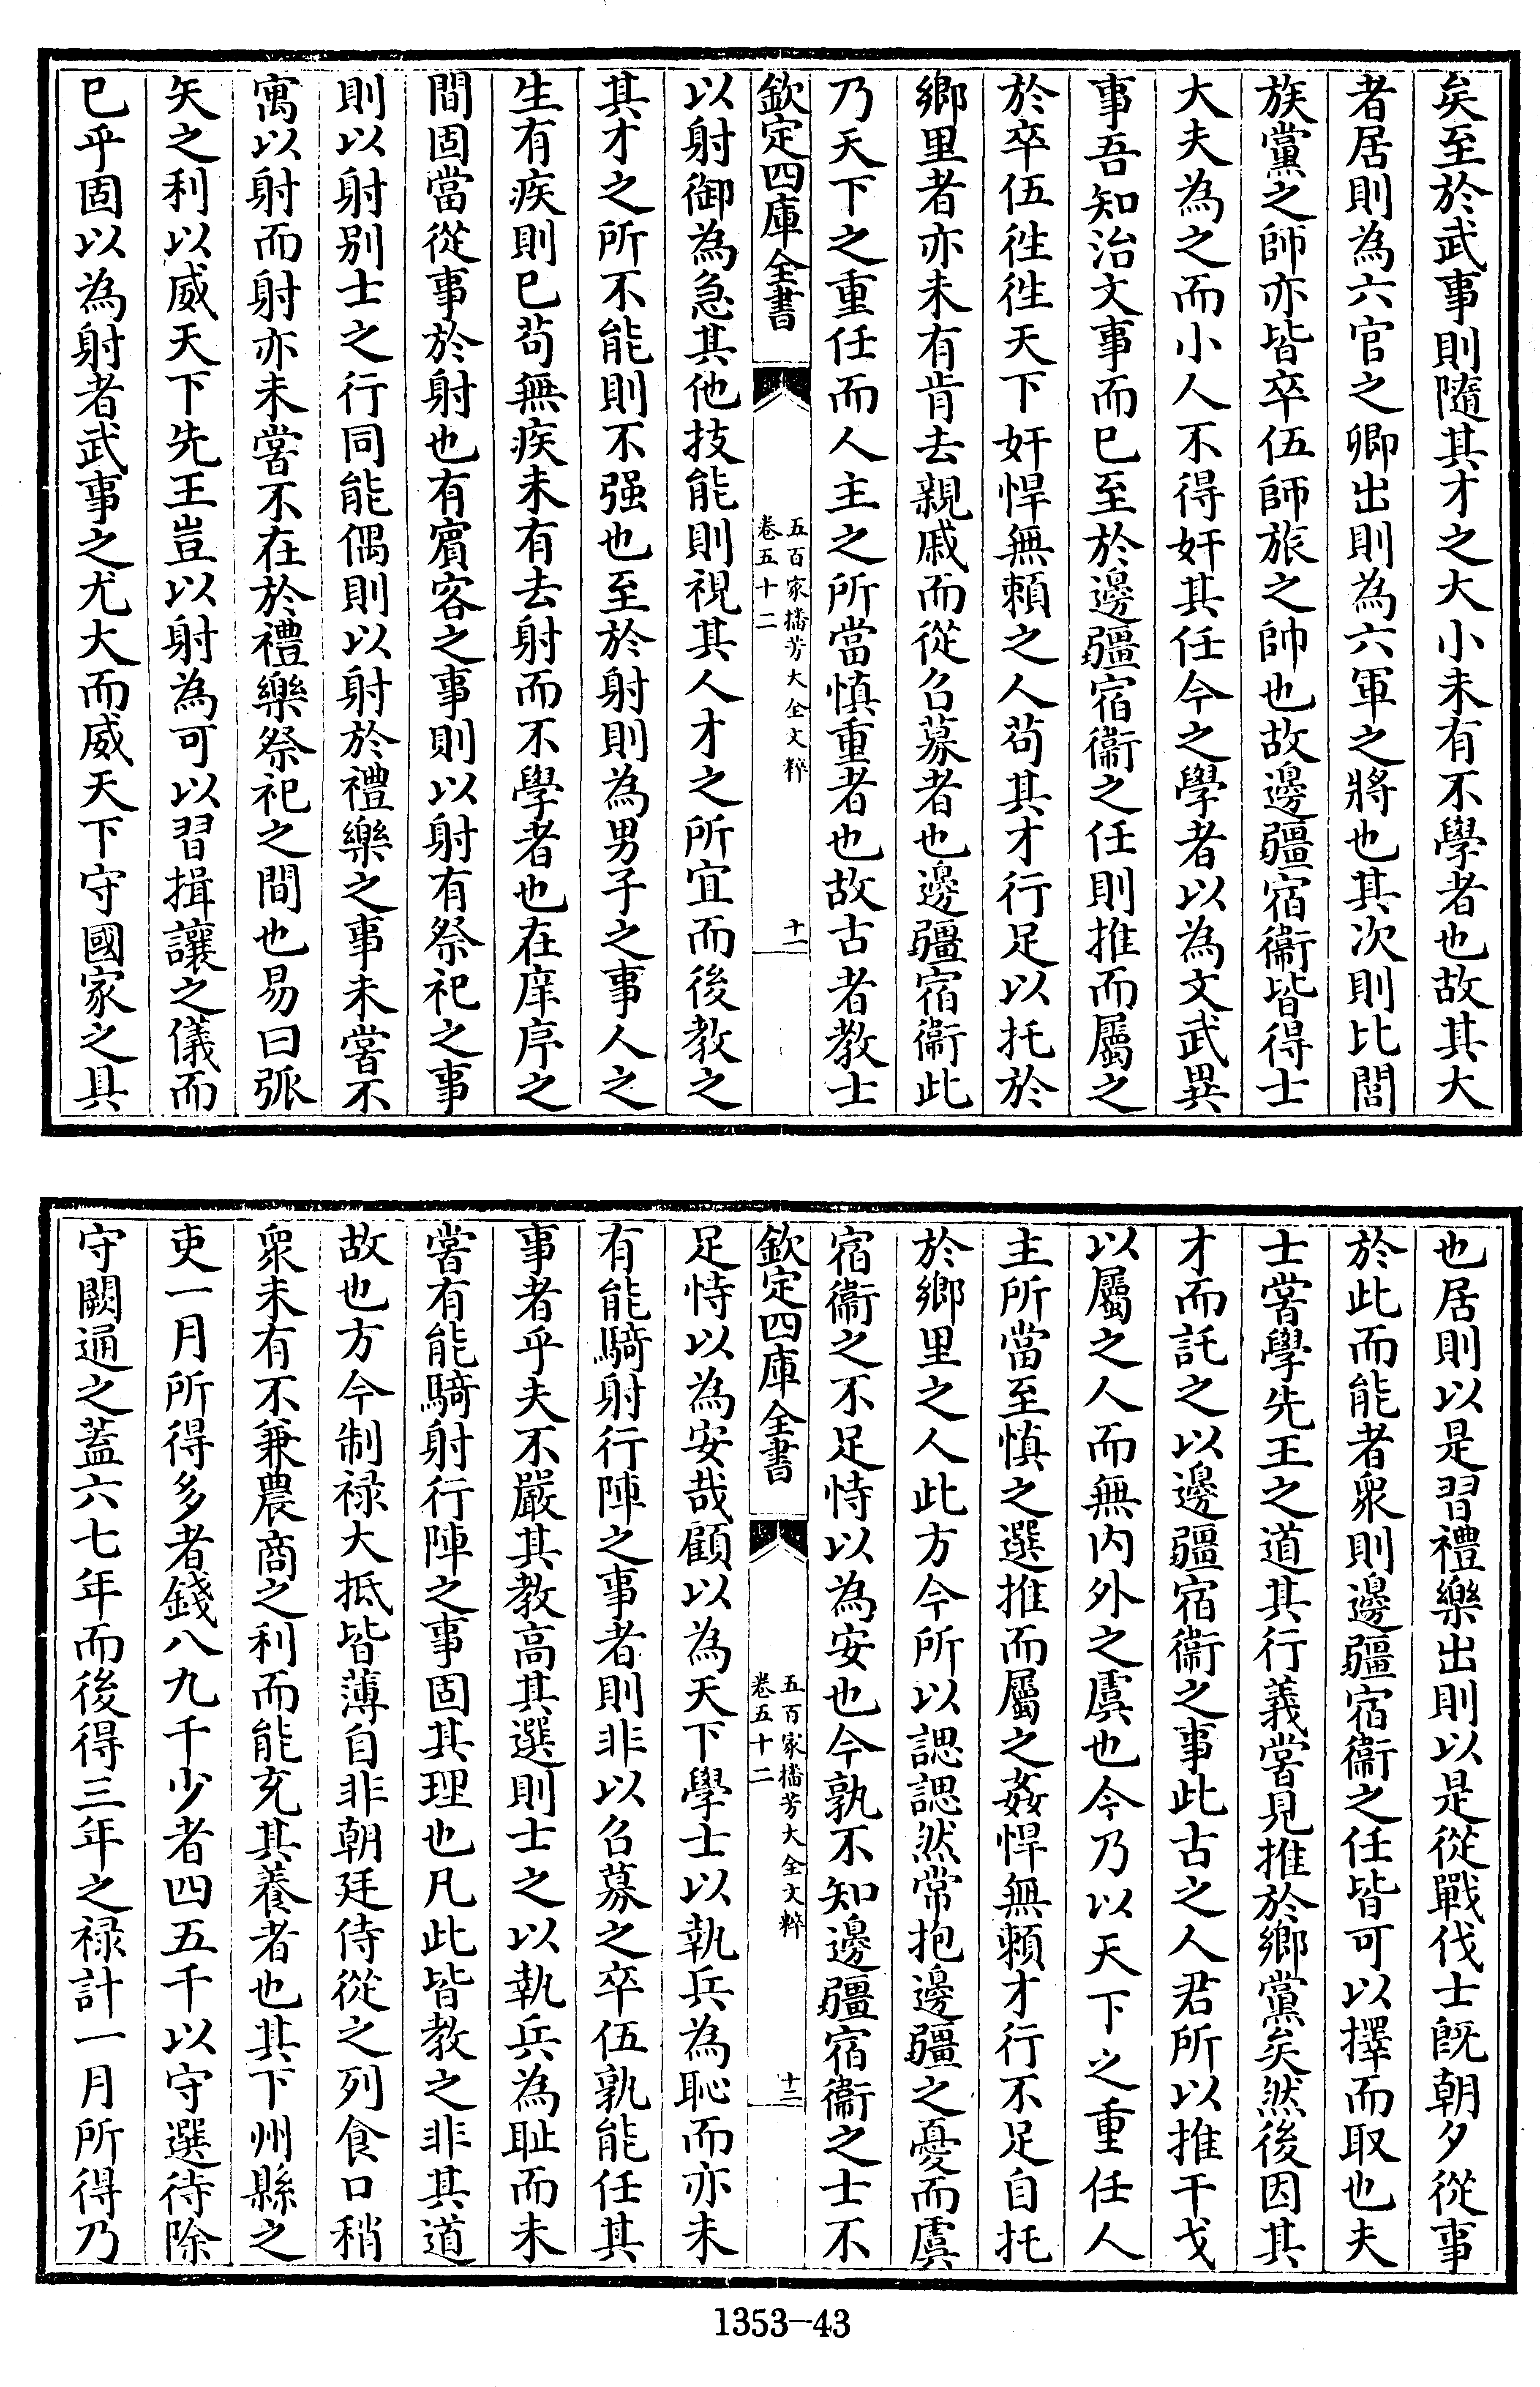 矣至於武事則隨其才之大小未有不學者也故其大
者居則為六官之卿出則為六軍之將也其次則比閭
族黨之師亦皆卒伍師旅之帥也故邊疆宿衞皆得士
大夫為之而小人不得奸其任今之學者以為文武異
事吾知治文事而已至於邊疆宿衞之任則推而屬之
於卒伍徃徃天下奸悍無賴之人苟其才行足以托於
鄉里者亦未有肯去親戚而從召募者也邊疆宿衞此
乃天下之重任而人主之所當慎重者也故古者教士
欽定四庫全書
五百家播芳大全文粹
卷五十二
十一
以射御為急其他技能則視其人才之所宜而後教之
其才之所不能則不强也至於射則為男子之事人之
生有疾則已苟無疾未有去射而不學者也在庠序之
間固當從事於射也有賓客之事則以射有祭祀之事
則以射别士之行同能偶則以射於禮樂之事未嘗不
寓以射而射亦未嘗不在於禮樂祭祀之間也易曰弧
矢之利以威天下先王豈以射為可以習揖讓之儀而
已乎固以為射者武事之尤大而威天下守國家之具
也居則以是習禮樂出則以是從戰伐士既朝夕從事
於此而能者衆則邊疆宿衞之任皆可以擇而取也夫
士嘗學先王之道其行義嘗見推於鄉黨矣然後因其
才而託之以邊疆宿衞之事此古之人君所以推干戈
以屬之人而無内外之虞也今乃以天下之重任人
主所當至慎之選推而屬之姦悍無賴才行不足自托
於鄉里之人此方今所以諰諰然常抱邊疆之憂而虞
宿衞之不足恃以為安也今孰不知邊疆宿衞之士不
欽定四庫全書
五百家播芳大全文粹
卷五十二
十二
足恃以為安哉顧以為天下學士以執兵為恥而亦未
有能騎射行陣之事者則非以召募之卒伍孰能任其
事者乎夫不嚴其教高其選則士之以執兵為耻而未
嘗有能騎射行陣之事固其理也凡此皆教之非其道
故也方今制禄大抵皆薄自非朝廷侍從之列食口稍
衆未有不兼農商之利而能充其養者也其下州縣之
吏一月所得多者錢八九千少者四五千以守選待除
守闕通之蓋六七年而後得三年之禄計一月所得乃
1353-43